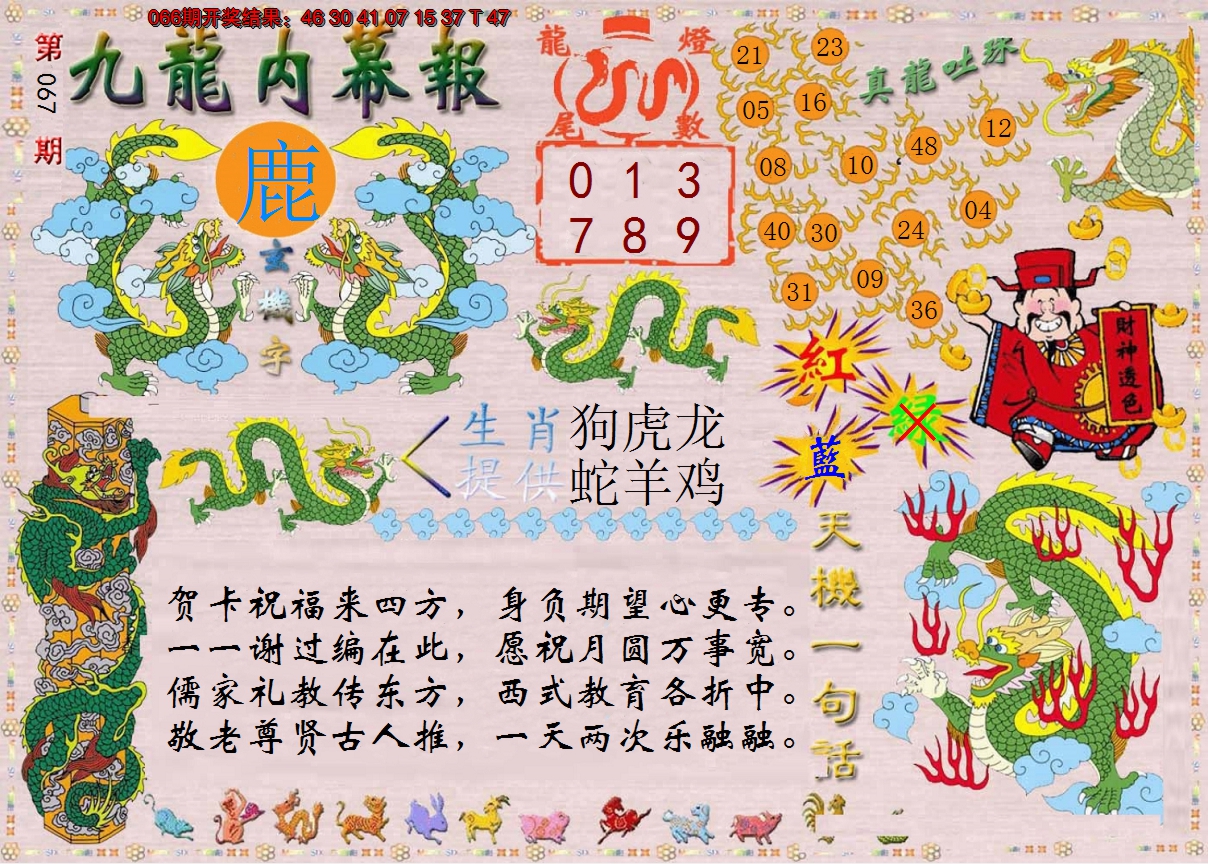 066期开奖结果：46 30 41 07 15 37 T 47
第067期
九龍内幕報
鹿
玄機字
龍燈
尾數
0 1 3
7 8 9
真龍吐珠
21 23
05 16
08 10 48 12
40 30 24 04
31 09 36
紅
绿
藍
財神透色
生肖 狗虎龙
提供 蛇羊鸡
贺卡祝福来四方，身负期望心更专。
一一谢过编在此，愿祝月圆万事宽。
儒家礼教传东方，西式教育各折中。
敬老尊贤古人推，一天两次乐融融。
天機一句話